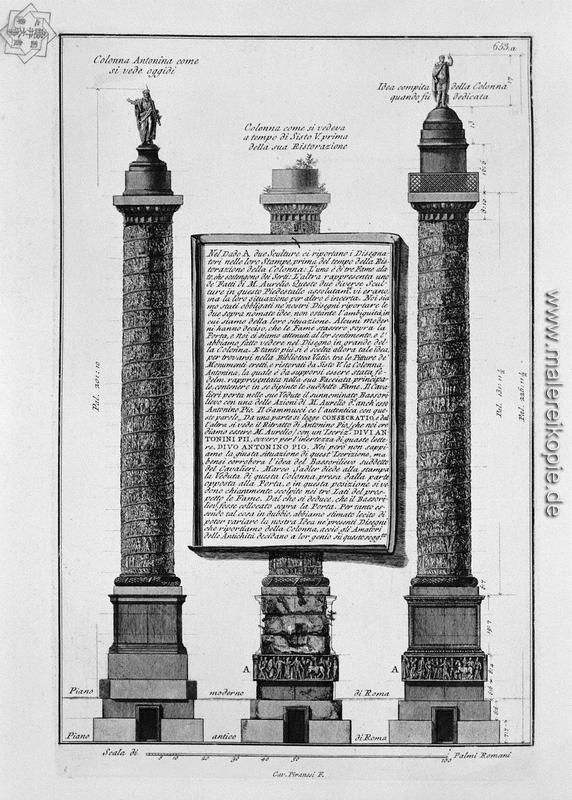 653.a
Colonna Antonina come
si vede oggidì
Colonna come si vedeva
a tempo di Sisto V. prima
della sua Ristorazione
Idea compita della Colonna
quando fù dedicata
Nel Dado A due Sculture ci riportano i Disegna-
tori nelle loro Stampe, prima del tempo della Ris-
torazione della Colonna: L'una è di tre Fame ala-
te, che sostengono dei Serti: L'altra rappresenta uno
de' Fatti di M. Aurelio. Queste due diverse Scul-
ture in questo Piedestallo assolutam.e vi erano,
ma la loro situazione per altro è incerta. Noi sia-
mo stati obbligati ne' nostri Disegni riportare le
due sopra nomate idee, non ostante l'ambiguità, in
cui siamo della loro situazione. Alcuni moder-
ni hanno deciso, che le Fame stassero sopra la
Porta, e Noi ci siamo attenuti al lor sentimento, e l'
abbiamo fatto vedere nel Disegno in grande del-
la Colonna. E tanto più si è scelta allora tal idea,
per trovarsi nella Biblioteca Vatic. tra le Pitture de'
Monumenti eretti, e ristorati da Sisto V. la Colonna
Antonina, la quale è da supporsi essere stata fe-
delm. rappresentata nella sua Facciata principa-
le, contenere in se dipinte le suddette Fame. Il Cava-
lieri porta nelle sue Vedute il sunnominato Bassori
lievo con una delle Azioni di M. Aurelio d'anch'esso
Antonino Pio. Il Gammucci ce l'autentica con que-
ste parole. Da una parte si legge CONSECRATIO, e dal
l'altra si vede il Ritratto di Antonino Pio, (che noi cre
diamo essere M. Aurelio) con un' Iscriz.e DIVI AN
TONINI PII, ovvero per l'intertezza di queste lette-
re, DIVO ANTONINO PIO. Noi però non sappi-
amo la giusta situazione di quest' Iscrizione, ma
bensì corrobora l'idea del Bassorilievo suddetto
del Cavalieri. Marco Sadler diede alla stampa
la Veduta di questa Colonna presa dalla parte
opposta alla Porta, e in questa posizione si ve-
dono chiaramente scolpite nei tre Lati del pros-
petto le Fame. Dal che si deduce, che il Bassori-
liev.o fosse collocato sopra la Porta. Per tanto es-
sendo tal cosa in dubbio, abbiamo stimato lecito di
poter variare la nostra Idea ne' presenti Disegni
che riportiamo della Colonna, acciò gli Amatori
delle Antichità decidano a lor genio sù questo sogg.to
Pal. 201:10
A
A
Piano moderno di Roma
Piano antico di Roma
Scala di 5 10 20 30 40 50 100 Palmi Romani
Cav. Piranesi F.
www.malereikopie.de